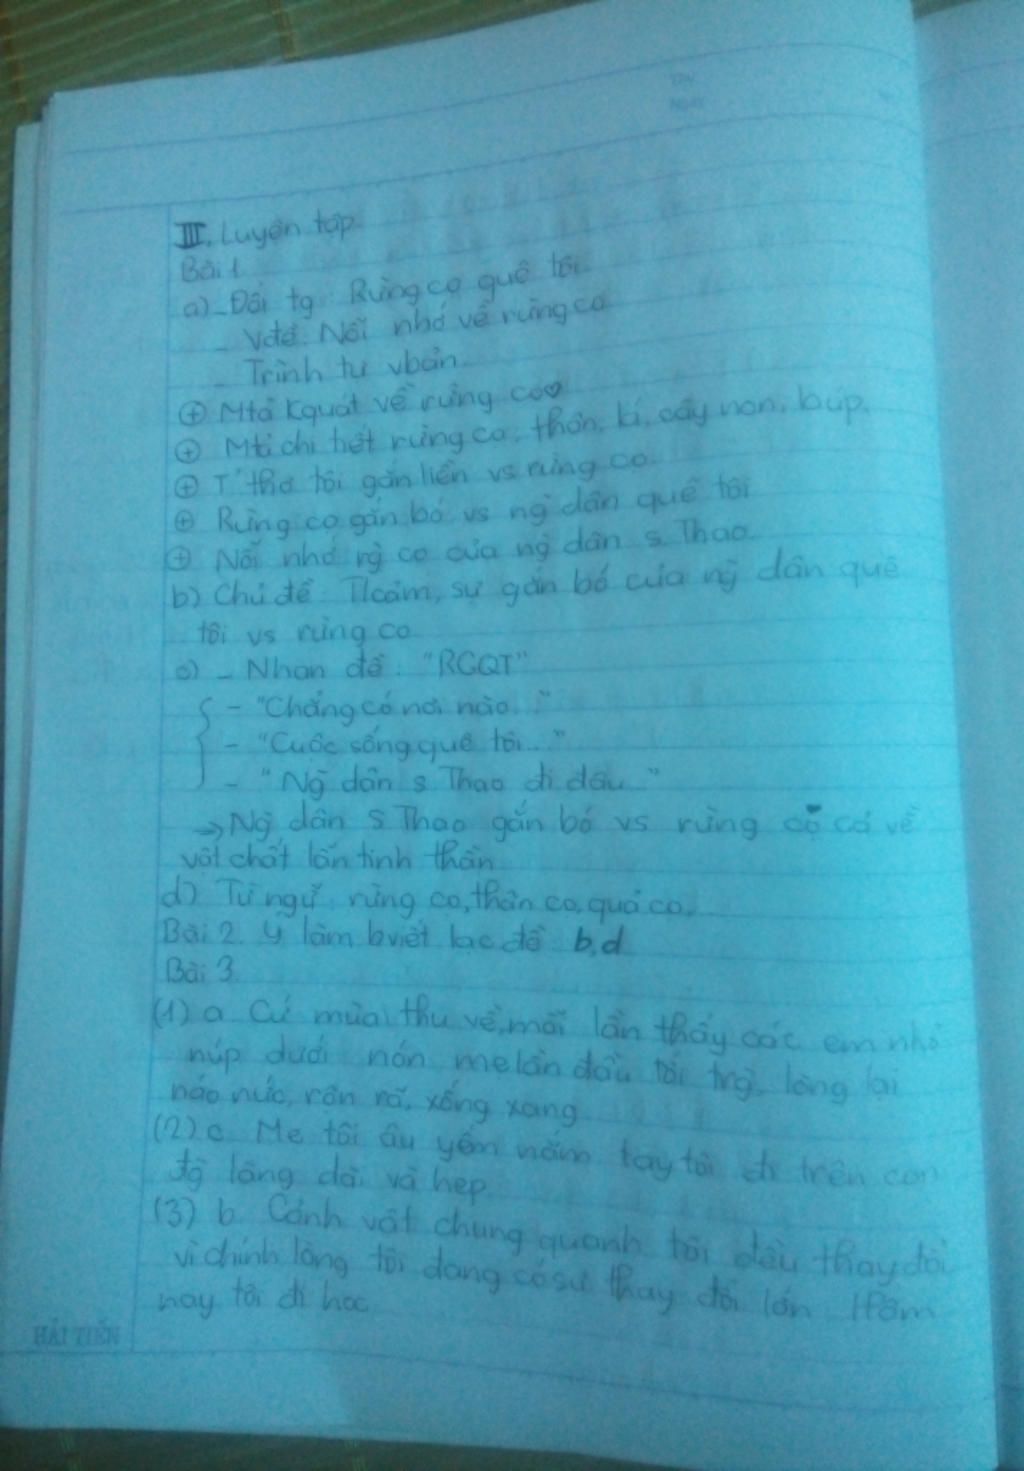 III. Luyện tập
Bài 1
a) - Đối tg: Rừng cọ quê tôi
- Vđề: Nỗi nhớ về rừng cọ
- Trình tự vbản
⊕ Mtả kquát về rừng cọ
⊕ Mtả chi tiết rừng cọ: thân, lá, cây non, búp.
⊕ T' thơ tôi gắn liền vs rừng cọ.
⊕ Rừng cọ gắn bó vs ng̀ dân quê tôi
⊕ Nỗi nhớ rg̀ cọ của ng̀ dân s. Thao.
b) Chủ đề: Tcảm, sự gắn bó của ng̀ dân quê
tôi vs rừng cọ
c) - Nhan đề: "RCQT"
- "Chẳng có nơi nào..."
- "Cuộc sống quê tôi..."
- "Ng̀ dân s Thao đi đâu..."
→ Ng̀ dân s Thao gắn bó vs rừng cọ cả về
vật chất lẫn tinh thần
d) Từ ngữ: rừng cọ, thân cọ, quả cọ.
Bài 2. Ý làm bviết lạc đề: b, d
Bài 3.
(1) a. Cứ mùa thu về, mỗi lần thấy các em nhỏ
núp dưới nón mẹ lần đầu tới trg̀, lòng lại
náo nức, rộn rã, xốn xang
(2) c. Mẹ tôi âu yếm nắm tay tôi đi trên con
đg̀ làng dài và hẹp.
(3) b. Cảnh vật chung quanh tôi đều thay đổi
vì chính lòng tôi đang có sự thay đổi lớn. Hôm
nay tôi đi học
HẢI TIẾN